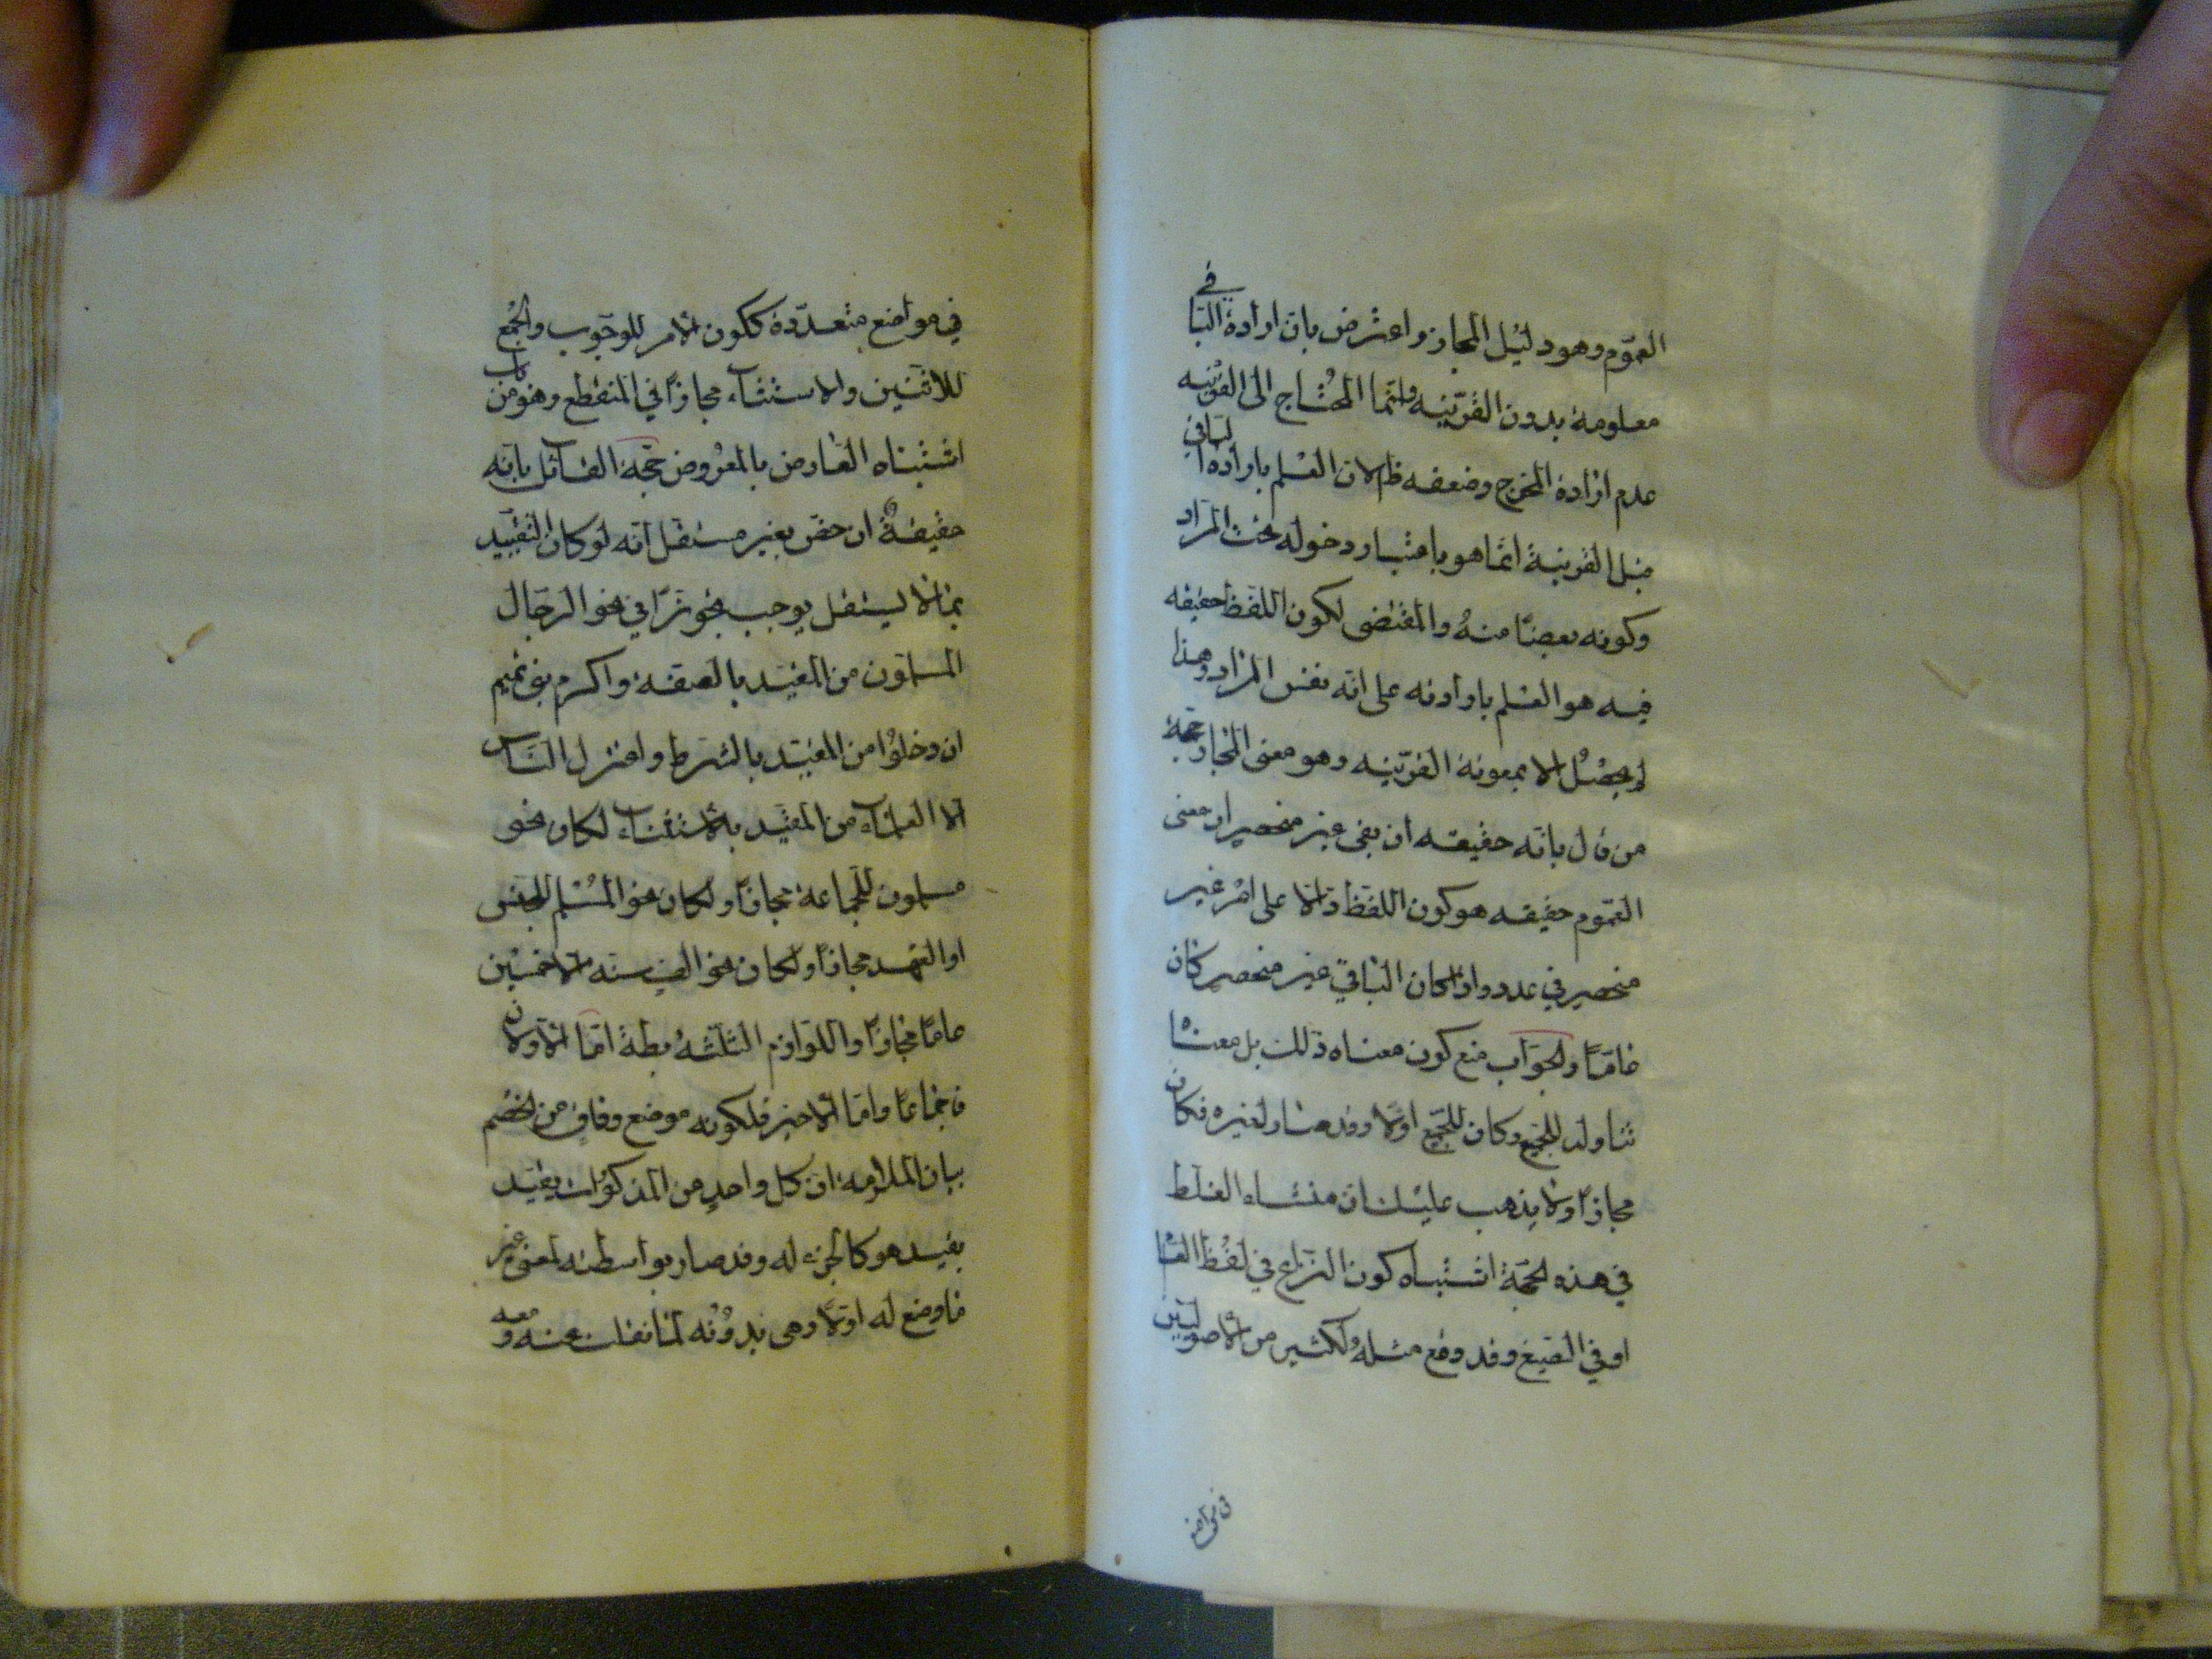 العموم وهو دليل المجاز واعترض بان ارادة الباقي
معلومة بدون القرينه وانما المحتاج الى القرينه
عدم ارادة المخرج وضعفه ظ لان العلم بارادة الباقي
قبل القرينة انما هو باعتبار دخوله تحت المراد
وكونه بعضا منه والمقتضى لكون اللفظ حقيقه
فيه هو العلم بارادته على انه نفس المراد وهذا
لم يحصل الا بمعونة القرينه وهو معنى المجاز حجة
من قال بانه حقيقه ان بقى غير منحصر ان معنى
العموم حقيقه هو كون اللفظ دالا على امر غير
منحصر في عدد واذا كان الباقي غير منحصر كان
عاما والجواب منع كون معناه ذلك بل معناه
تناوله للجميع وكان للجميع اولا وقد صار لغيره فكان
مجازا ولا يذهب عليك ان منشاء الغلط
في هذه الحجة اشتباه كون النزاع في لفظ العا
او في الصيغ وقد وقع مثله لكثير من الاصوليين
في مواضع
في مواضع متعددة ككون الامر للوجوب والجمع
للاثنين والاستثناء مجازا في المنقطع وهو من باب
اشتباه العارض بالمعروض حجة القائل بانه
حقيقة ان خص بغير مستقل انه لو كان التقييد
بما لا يستقل يوجب تجوزا في نحو الرجال
المسلمون من المقيد بالصفة واكرم بنى تميم
ان دخلوا من المقيد بالشرط واعتزل الناس
الا العلماء من المقيد بالاستثناء لكان نحو
مسلمون للجماعة مجازا ولكان نحو المسلم للجنس
او العهد مجازا ولكان نحو الف سنه الا خمسين
عاما مجازا واللوازم الثلثة بطة اما الاولان
فاجماعا واما الاخير فلكونه موضع وفاق من الخصم
بيان الملازمة ان كل واحد من المذكورات يقيد
بقيد هو كالجزء له وقد صار بواسطته لمعنى غير
ما وضع له اولا وهى بدونه لما نقلت عنه ومعه